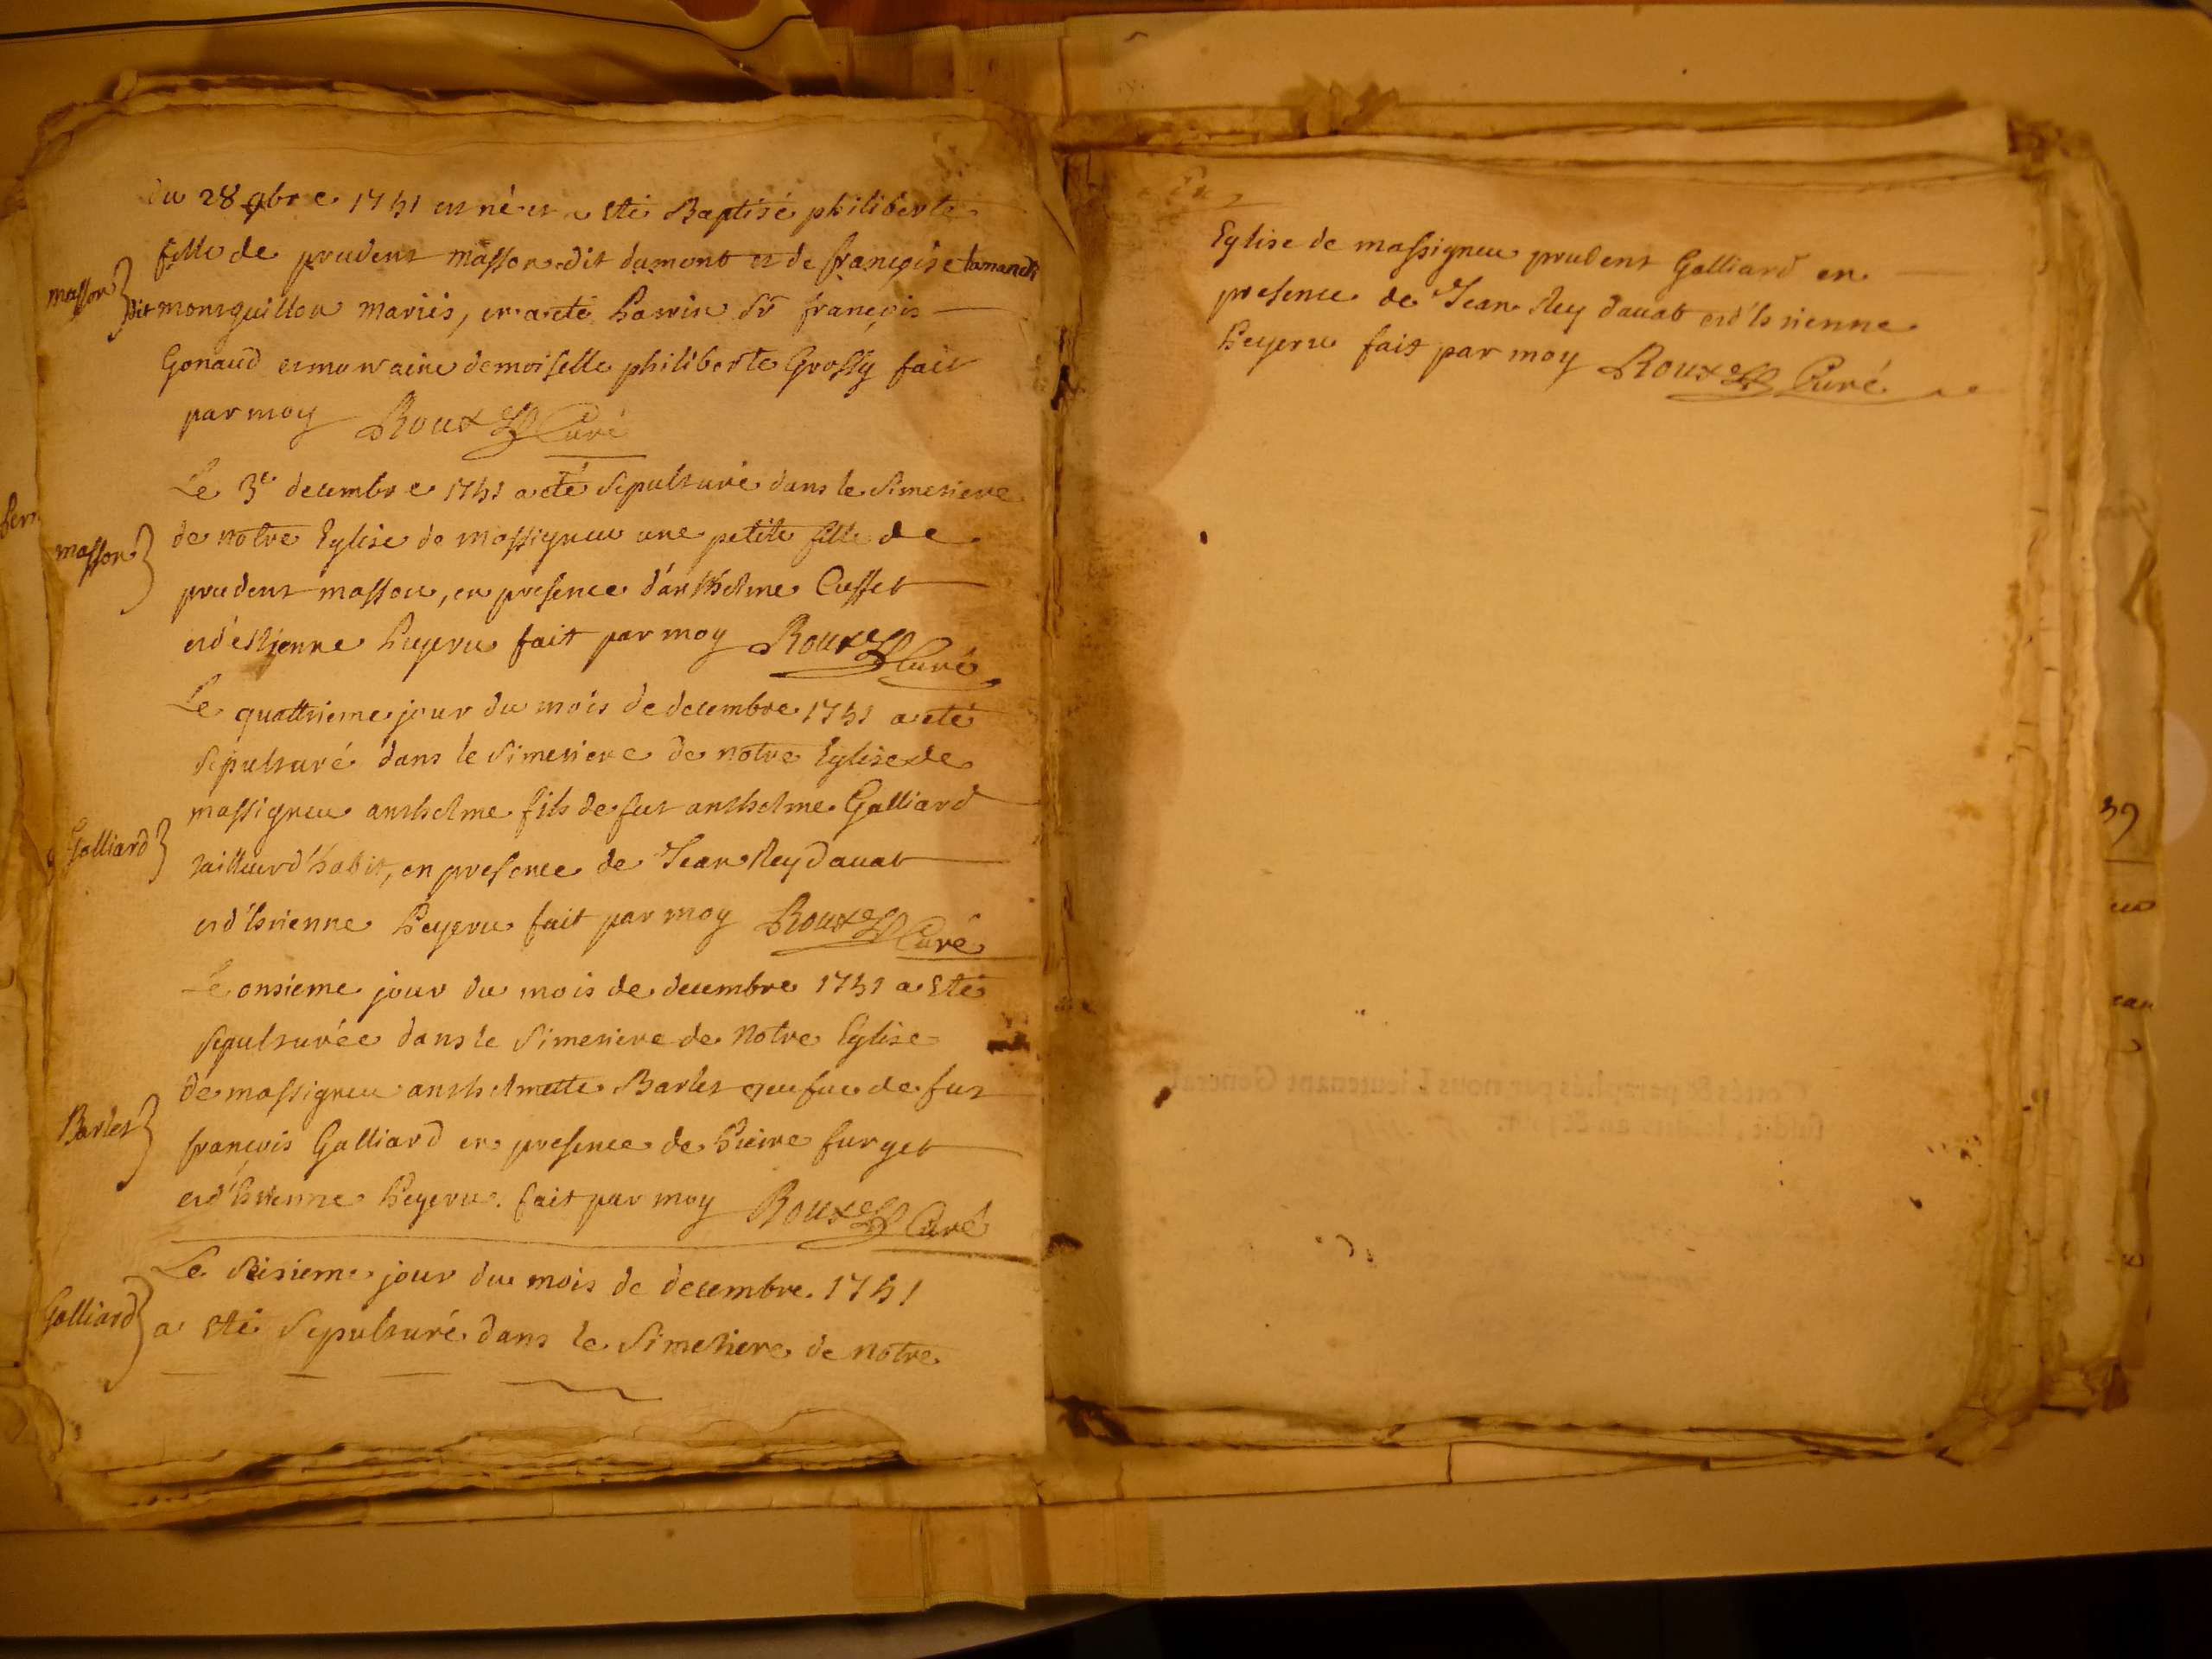 Du 28 9bre 1751 est né et a eté Baptisé philiberte
fille de prudent masson dit dumont et de françoise lamande
masson
dit montquillon mariés, et a eté parrin Sr françois
Gonaud et marraine demoiselle philiberte Grossy fait
par moy Roux Curé
Le 3e decembre 1751 a eté sepulturé dans le simetiere
masson
de notre Eglise de massigneu une petite fille de
prudent masson, en presence d'anthelme Cusset
et d'estienne peyeru fait par moy Roux Curé
Le quattrieme jour du mois de decembre 1751 a eté
sepulturé dans le simetiere de notre Eglise de
massigneu anthelme fils de fut anthelme Galliard
Galliard
tailleur d'habit, en presence de Jean Rey davat
et d'Estienne peyeru fait par moy Roux Curé
Le onsieme jour du mois de decembre 1751 a Eté
sepulturée dans le simetiere de notre Eglise
de massigneu anthelmette Barlet veufue de fut
Barlet
françois Galliard en presence de pierre furget
et d'Estienne peyeru. fait par moy Roux Curé
Le Seisieme jour du mois de decembre 1751
Galliard
a Eté sepulturé dans le simetiere de notre
Eglise de massigneu prudent Galliard en
presence de Jean Rey davat et d'Estienne
peyeru fait par moy Roux Curé
39